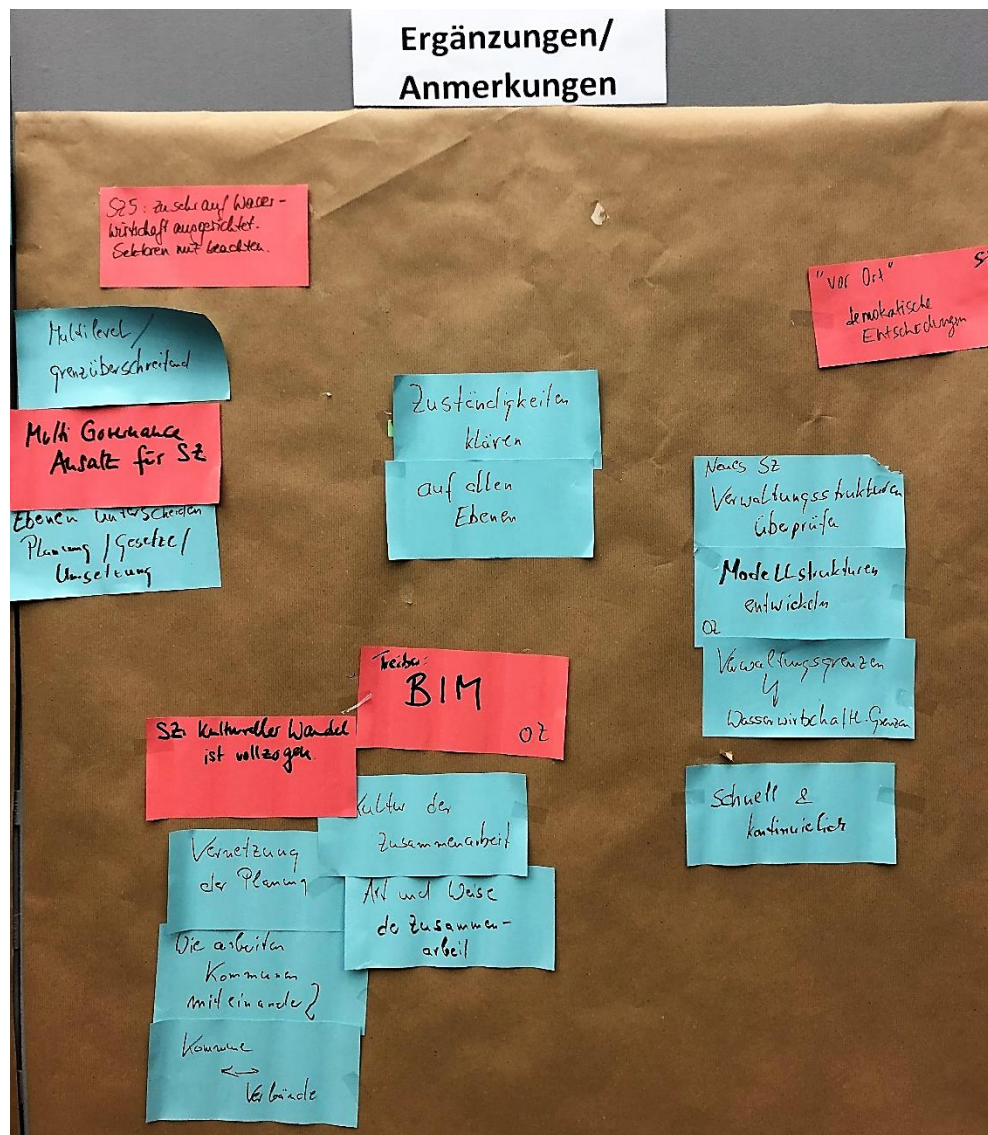 Ergänzungen/
Anmerkungen
SZ5: zu sehr auf Wasser-
wirtschaft ausgerichtet.
Sektoren mit beachten.
"vor Ort"
demokratische
Entscheidungen
Multilevel/
grenzüberschreitend
Multi Governance
Ansatz für SZ
Ebenen unterscheiden
Planung / Gesetze /
Umsetzung
Zuständigkeiten
klären
auf allen
Ebenen
Neues SZ
Verwaltungsstrukturen
überprüfen
Modellstrukturen
entwickeln
OZ
Verwaltungsgrenzen
Wasserwirtschaftl. Grenzen
Schnell &
kontinuierlich
Treiber:
BIM
OZ
SZ: Kultureller Wandel
ist vollzogen.
Kultur der
Zusammenarbeit
Art und Weise
der Zusammen-
arbeit
Vernetzung
der Planung
Wie arbeiten
Kommunen
miteinander?
Kommune
↔
Verbände